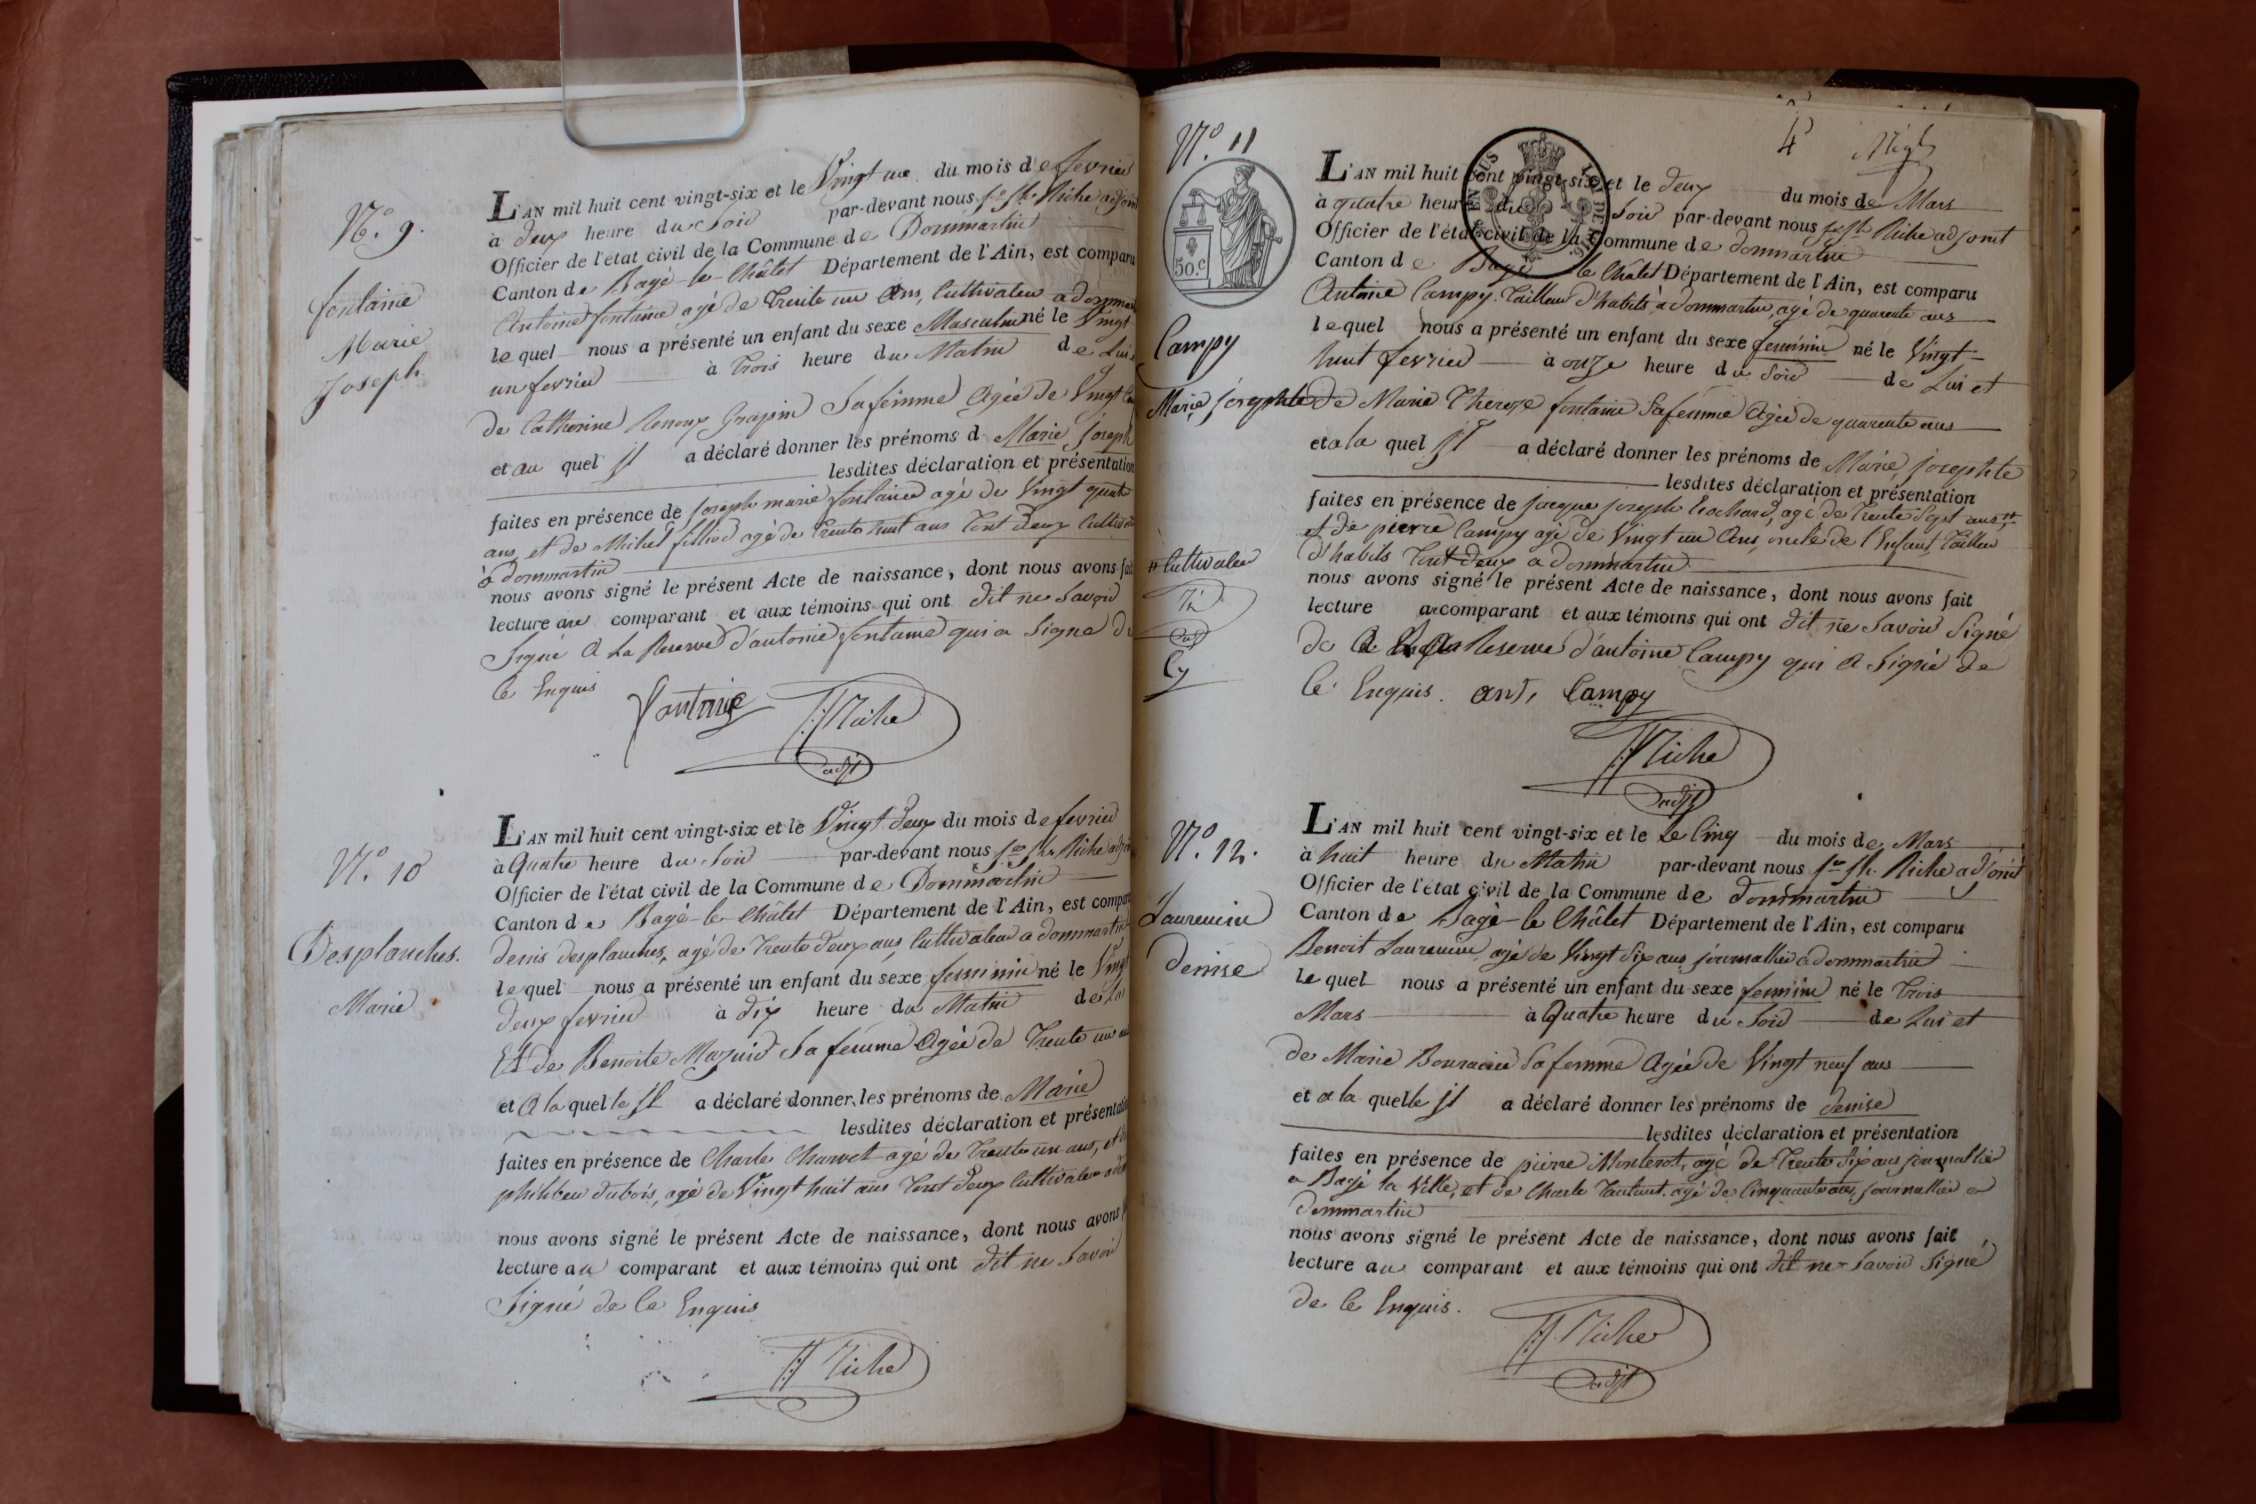 N.o 9.
fontaine
Marie
Joseph
L'AN mil huit cent vingt-six et le Vingt un du mois de fevrier
à deux heure du Soir par-devant nous Riche adjoint
Officier de l'état civil de la Commune de Dommartin
Canton de Bagé-le-Châtel Département de l'Ain, est comparu
Antoine fontaine agé de Trente un Ans, Cultivateur a dommar
lequel nous a présenté un enfant du sexe Masculin né le Vingt
un fevrier à Trois heure du Matin de Lui
de Catherine Grapin Sa femme Agée de Vingt
et au quel Il a déclaré donner les prénoms d Marie Joseph
lesdites déclaration et présentation
faites en présence de Joseph marie fontaine agé de Vingt quatr
ans et de Michel fillod agé de Trente huit ans Tout deux Cultivat
à dommartin
nous avons signé le présent Acte de naissance, dont nous avons fait
lecture au comparant et aux témoins qui ont dit ne Savoir
Signé A La Reserve d'antoine fontaine qui a Signé de
Ce Enquis fontaine Riche
adjt
N.o 10
Desplanches.
Marie
L'AN mil huit cent vingt-six et le Vingt deux du mois de fevrier
à Quatre heure du Soir par-devant nous Riche adjoi
Officier de l'état civil de la Commune de Dommartin
Canton de Bagé-le-Châtel Département de l'Ain, est compar
denis desplanches, agé de Trente deux ans, Cultivateur a dommartin
lequel nous a présenté un enfant du sexe feminin né le Vingt
deux fevrier à dix heure du Matin de Lui
Et de Benoite Sa femme Agée de Trente un an
et A la quelle Il a déclaré donner les prénoms de Marie
lesdites déclaration et présentation
faites en présence de Charle Charvet agé de Trente un ans, et de
philibeu dubois, agé de Vingt huit ans Tout deux Cultivateur a do
nous avons signé le présent Acte de naissance, dont nous avons f
lecture au comparant et aux témoins qui ont dit ne Savoir
Signé de Ce Enquis
Riche
4
N.o 11
50.c
Campy
Marie josephte
L'AN mil huit cent vingt-six et le deux du mois de Mars
à quatre heure du Soir par-devant nous Riche adjoint
Officier de l'état civil de la Commune de dommartin
Canton de Bagé le Châtel Département de l'Ain, est comparu
Antoine Campy. Tailleur d'habits, à dommartin, agé de quarente ans
lequel nous a présenté un enfant du sexe feminin né le Vingt-
huit fevrier à onze heure du Soir de Lui et
de Marie Thereze fontaine Sa femme Agée de quarente ans
et a la quel Il a déclaré donner les prénoms de Marie josephte
lesdites déclaration et présentation
faites en présence de jacque joseph Trochard, agé de Trente Sept ans, #
et de pierre Campy agé de Vingt un Ans, oncle de l'Enfant, Tailleur
d'habits Tout deux a dommartin
# Cultivateur
adjt
Cy
nous avons signé le présent Acte de naissance, dont nous avons fait
lecture au comparant et aux témoins qui ont dit ne Savoir Signé
de Reserve d'antoine Campy qui A Signé de
Ce Enquis. ant, Campy
Riche
adjt
N.o 12.
Laurencin
denise
L'AN mil huit cent vingt-six et le Le Cinq du mois de Mars
à huit heure du Matin par-devant nous Riche adjoint
Officier de l'état civil de la Commune de dommartin
Canton de Bagé-le Châtel Département de l'Ain, est comparu
Benoit Laurencin, agé de Vingt Six ans, journallier a dommartin
lequel nous a présenté un enfant du sexe feminin né le Trois
Mars à Quatre heure du Soir de Lui et
de Marie Sa femme Agée de Vingt neuf ans
et a la quelle Il a déclaré donner les prénoms de denise
lesdites déclaration et présentation
faites en présence de pierre Monterot, agé de Trente Six ans, journallier
a Bagé la Ville, et de Charle agé de Cinquante ans, journallier a
dommartin
nous avons signé le présent Acte de naissance, dont nous avons fait
lecture au comparant et aux témoins qui ont dit ne Savoir Signé
de Ce Enquis.
Riche
adjt